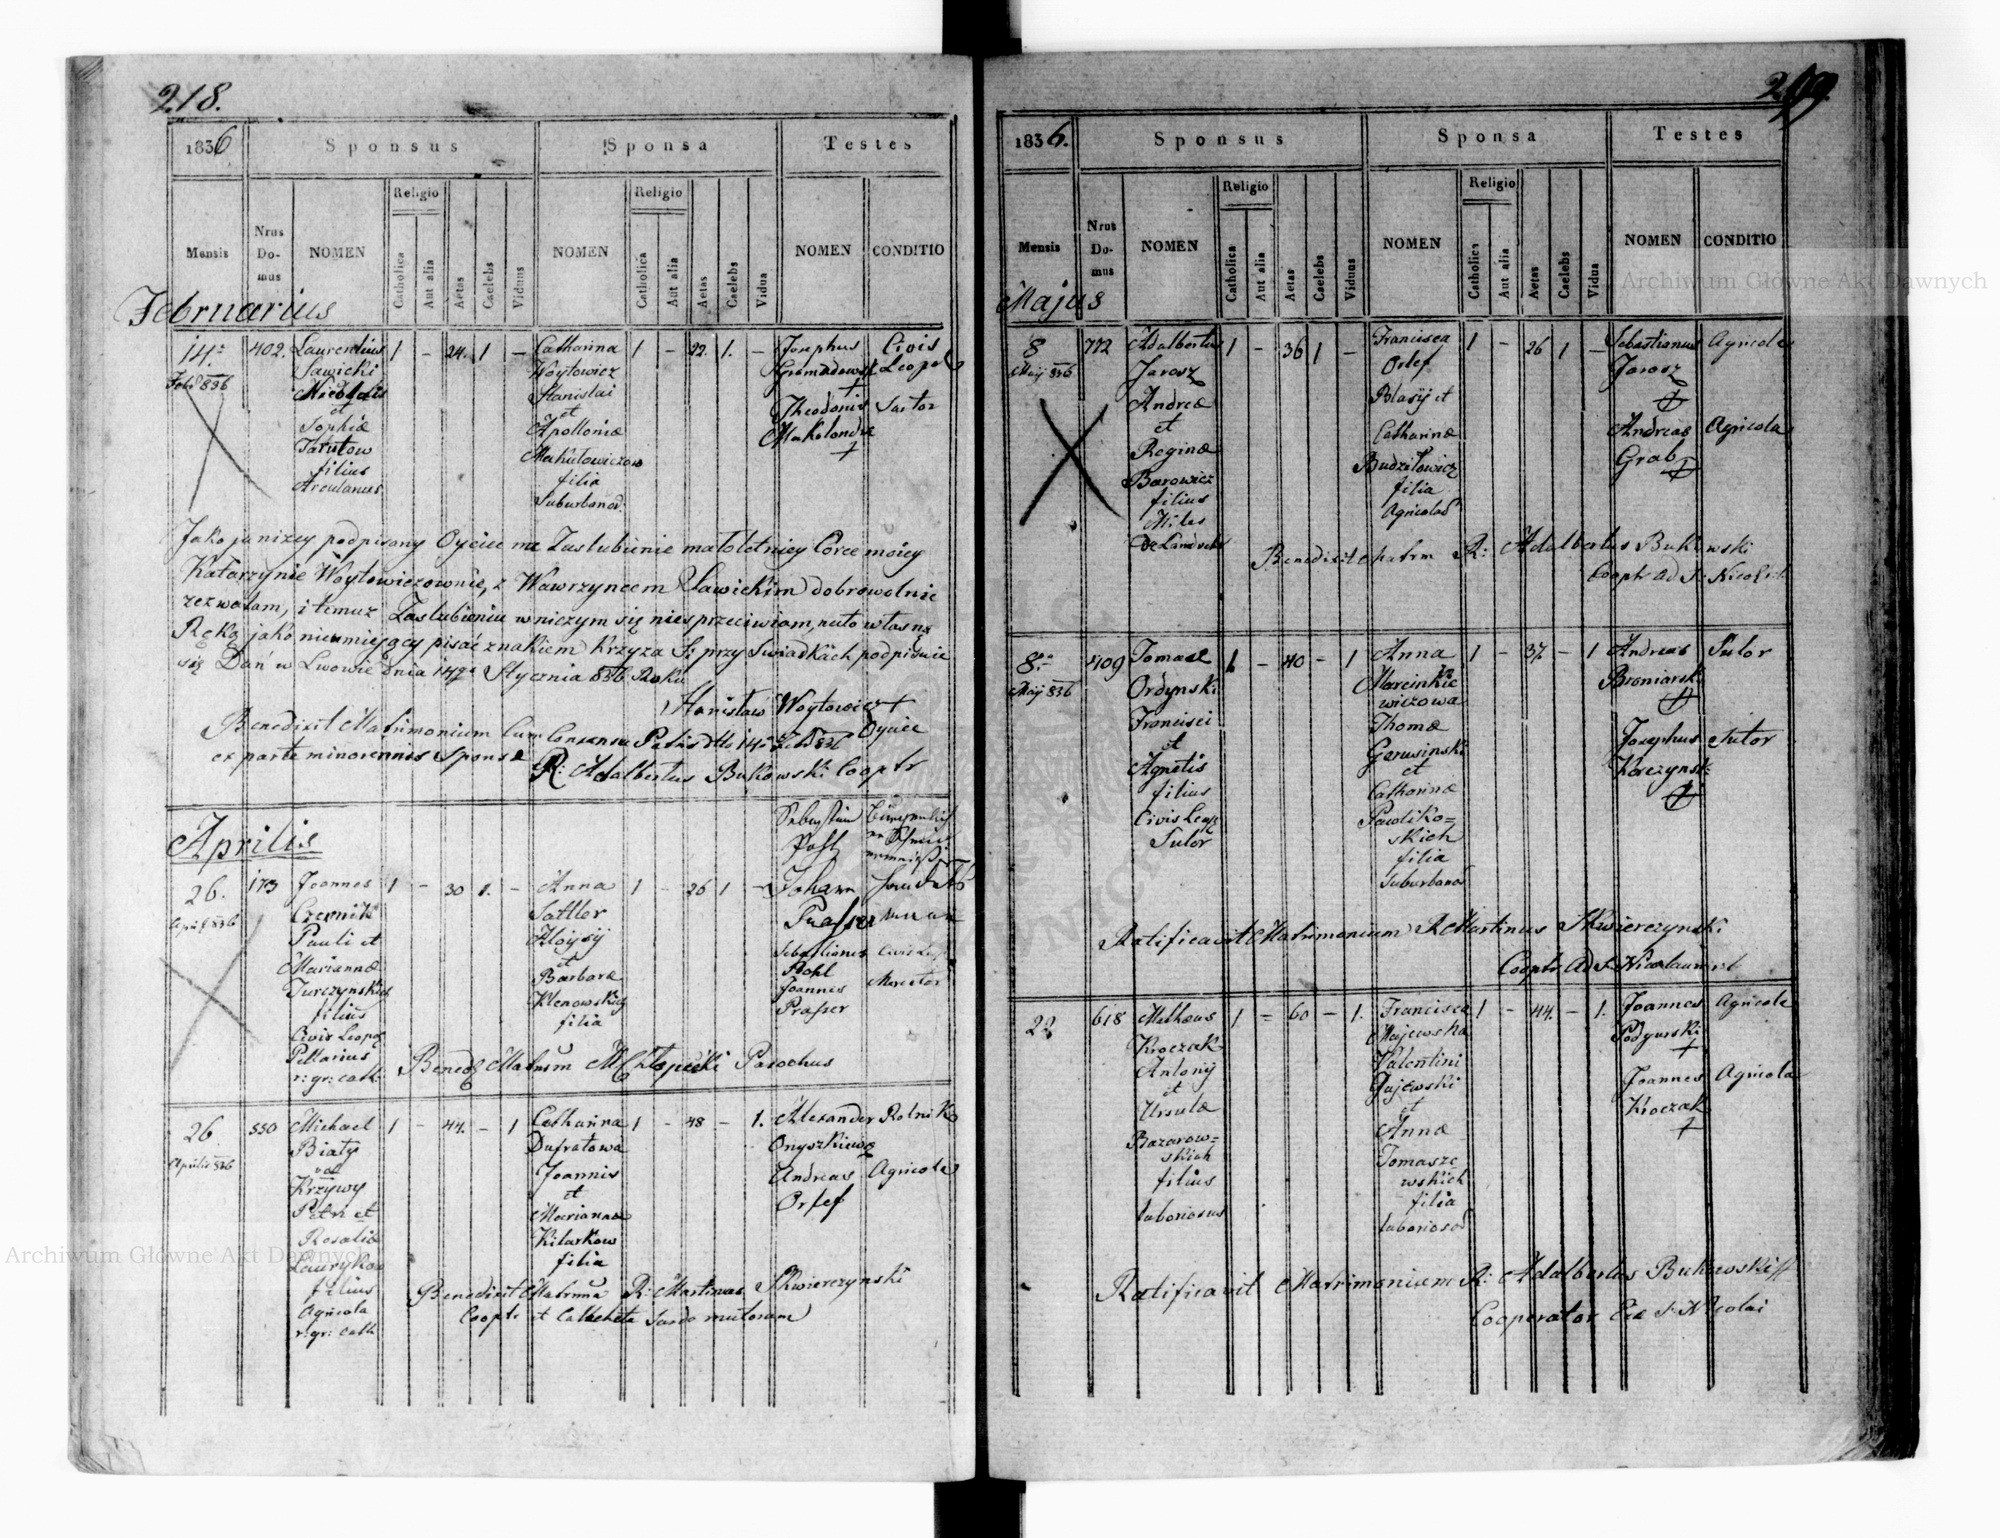 218.
1836
Sponsus
Sponsa
Testes
Mensis
Nrus Do-mus
NOMEN
Religio
Catholica
Aut alia
Aetas
Caelebs
Viduus
NOMEN
Religio
Catholica
Aut alia
Aetas
Caelebs
Vidua
NOMEN
CONDITIO
Februarius
14ª 402. Laurentius 1 – 24. 1 – Catharina 1 – 22. 1. – Josephus Civis
Feb 836 Sawicki Woytowicz Gromadowski Leopol
Nicolais Stanislai +
et et Theodorus Sartor
Sophiæ Apolloniæ
Tarutow Makutowiczow +
filius filia
Arculanus Suburbana
Jako ja niżey podpisany Oyciec na Zaslubienie małoletniey Corce moiey
Katarzynie Woytowiczownie, z Wawrzyncem Sawickim dobrowolnie
zezwalam, i temuż Zaslubieniu w niczym się niesprzeciwiam, na to własną
Ręką jako nieumiejący pisać znakiem Krzyża S: przy Swiadkach podpisuie
się Dań w Lwowie dnia 14ª Stycznia 836 Roku
Stanisław Woytowicz +
Oyciec
Benedixit Matrimonium cum Consensu Patris dtto 14ª Feb 836
ex parte minorennis Sponsæ R: Adalbertus Bukowski Cooptr
Aprilis
Sebastian
Pohl
26. 173 Joannes 1 – 30 1. – Anna 1 – 26 1 – Johann
April 836 Czernik Sattler Prasser
Pauli et Aloysij Sebastianus Civis
Mariannæ et Pohl
Turczynskich Barbaræ Joannes Mercator
filius Klenowskich Prasser
Civis Leop filia
Pellarius
r: gr: cath: Bened Matrim M Parochus
26. 550 Michael 1 – 44. – 1 Catharina 1 – 48 – 1. Alexander Rolnik
Aprilis 836 Biały Dufratowa Onyszkiewicz
vel Joannis Andreas Agricola
Krzywy et Orlef
Petri et Mariannæ
Rosaliæ Kitarkow
Laurykow filia
filius
Agricola
r: gr: cath
Benedixit Matrim R: Martinus Skwierczynski
Cooptr et Catecheta Surdo mutorum
219.
1836.
Sponsus
Sponsa
Testes
Mensis
Nrus Do-mus
NOMEN
Religio
Catholica
Aut alia
Aetas
Caelebs
Viduus
NOMEN
Religio
Catholica
Aut alia
Aetas
Caelebs
Vidua
NOMEN
CONDITIO
Majus
8 772 Adalbertus 1 – 36 1 – Francisca 1 – 26 1 – Sebastianus Agricola
Maij 836 Jarosz Orlef Jarosz
Andreæ Blasij et +
et Catharinæ Andreas Agricola
Reginæ Budziłowicz Grab
Barowicz filia +
filius Agricolas
Miles
de Landwehr
Benedixit Matrm R: Adalbertus Bukowski
Cooptr ad S: Nicol
8ª 409 Tomasz 1 – 40 – 1 Anna 1 – 37. – 1 Andreas Sutor
Maij 836 Ordynski Marcinkie Broniarski
Francisci wiczowa +
et Thomæ Josephus Sutor
Agnetis Gerusinski Korczynski
filius et +
Civis Leop Catharinæ
Sutor Pawliko=
skich
filia
Suburbana
Ratificavit Matrimonium R Martinus Skwierczynski
Cooptr ad S. Nicolaum
22 618 Matheus 1 = 60 – 1. Francisca 1 – 44. – 1. Joannes Agricola
Kroczak Majewska Podgurski
Antony Valentini +
et Gajewski Joannes Agricola
Ursulæ et Kroczak
Bazarow= Annæ +
skich Tomasze
filius wskich
laboriosus filia
laboriosa
Ratificavit Matrimonium R: Adalbertus Bukowski
Cooperator Ecc S: Nicolai
Archiwum Główne Akt Dawnych
Archiwum Główne Akt Dawnych